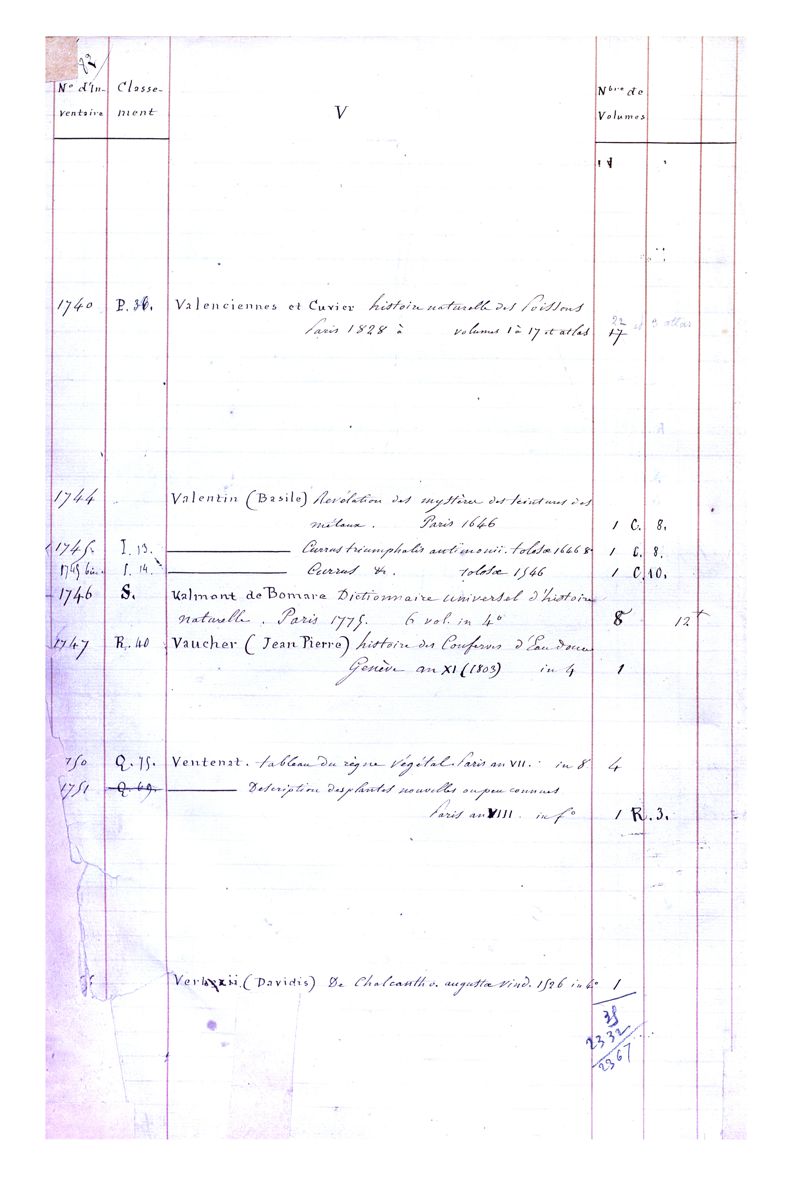 92
Nº d'In-
ventaire
Classe-
ment
V
Nbre de
Volumes
1740 P. 36. Valenciennes et Cuvier histoire naturelle des Poissons
Paris 1828 à volumes 1 à 17 et atlas 17
22 et 3 atlas
1744 Valentin (Basile) Revélation des mystères des teintures des
métaux. Paris 1646 1 C. 8.
1745. I. 13. Currus triumphalis antimonii. tolosæ 1646 8º 1 C. 8.
1745 bis. I. 14. Currus &c. tolosæ 1546 1 C. 10.
1746 S. Valmont de Bomare Dictionnaire universel d'histoire
naturelle. Paris 1775. 6 vol. in 4º 8 12+
1747 R. 40 Vaucher (Jean Pierre) histoire des Conferves d'Eau douce
Genève an XI (1803) in 4 1
750 Q. 75. Ventenat. tableau du règne végétal Paris an VII. in 8 4
1751 Q. 69. Description des plantes nouvelles ou peu connues
Paris an VIII. in fº 1 R. 3.
(Davidis) De Chalcantho. augustæ vind. 1526 in 4º 1
35
2332
2367